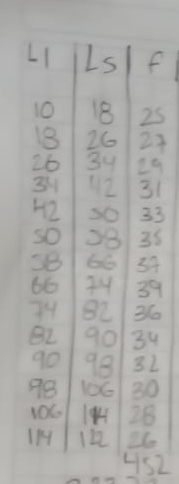 LI LS f
10 18 25
18 26 27
26 34 29
34 42 31
42 50 33
50 58 35
58 66 37
66 74 39
74 82 36
82 90 34
90 98 32
98 106 30
106 114 28
114 122 26
452